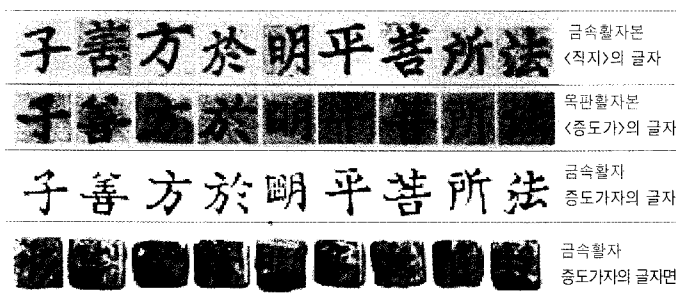 子善方於明平菩所法 금속활자본
<직지>의 글자
子善方於明 목판활자본
<증도가>의 글자
子善方於朙平菩所法 금속활자
증도가자의 글자
금속활자
증도가자의 글자면